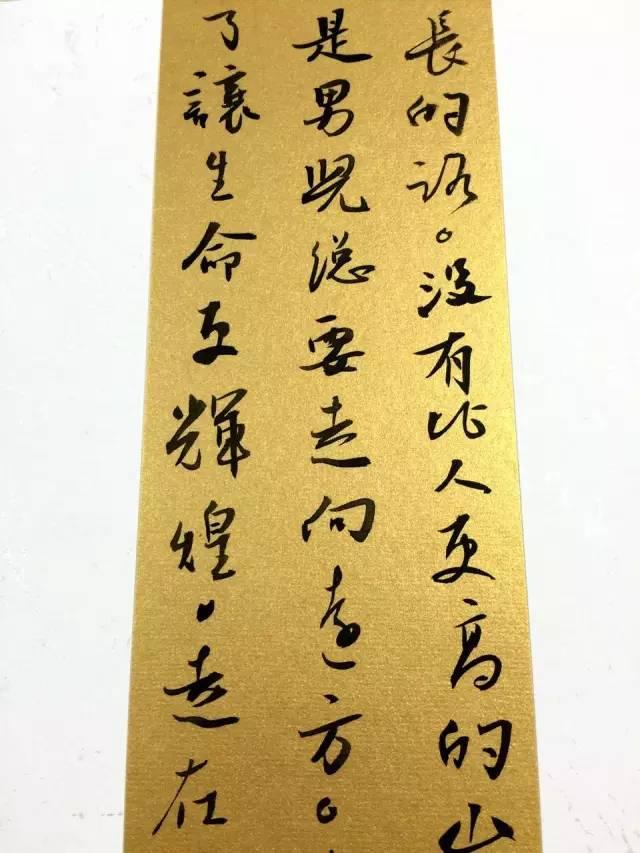 長的路。没有比人更高的山
是男児総要走向遠方。
了讓生命更輝煌。走在